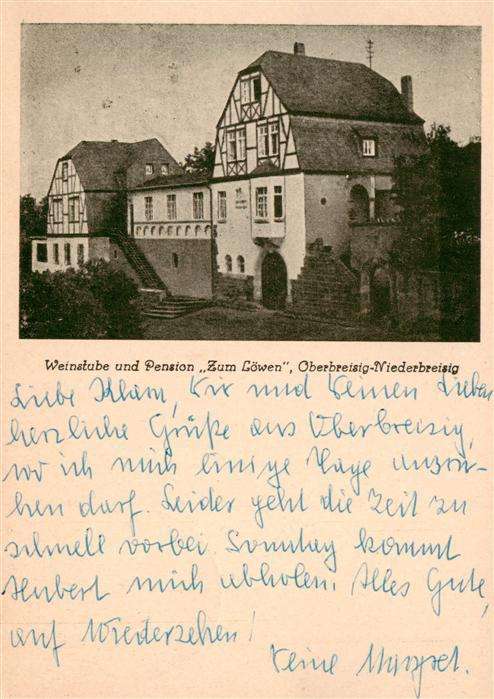 Weinstube und Pension „Zum Löwen“, Oberbreisig-Niederbreisig
Liebe Klara, Dir und Deinen Lieben
herzliche Grüße aus Oberbreisig,
wo ich mich einige Tage auszu-
hen darf. Leider geht die Zeit zu
schnell vorbei. Sonntag kommt
Hubert mich abholen. Alles Gute,
auf Wiedersehen!
Deine